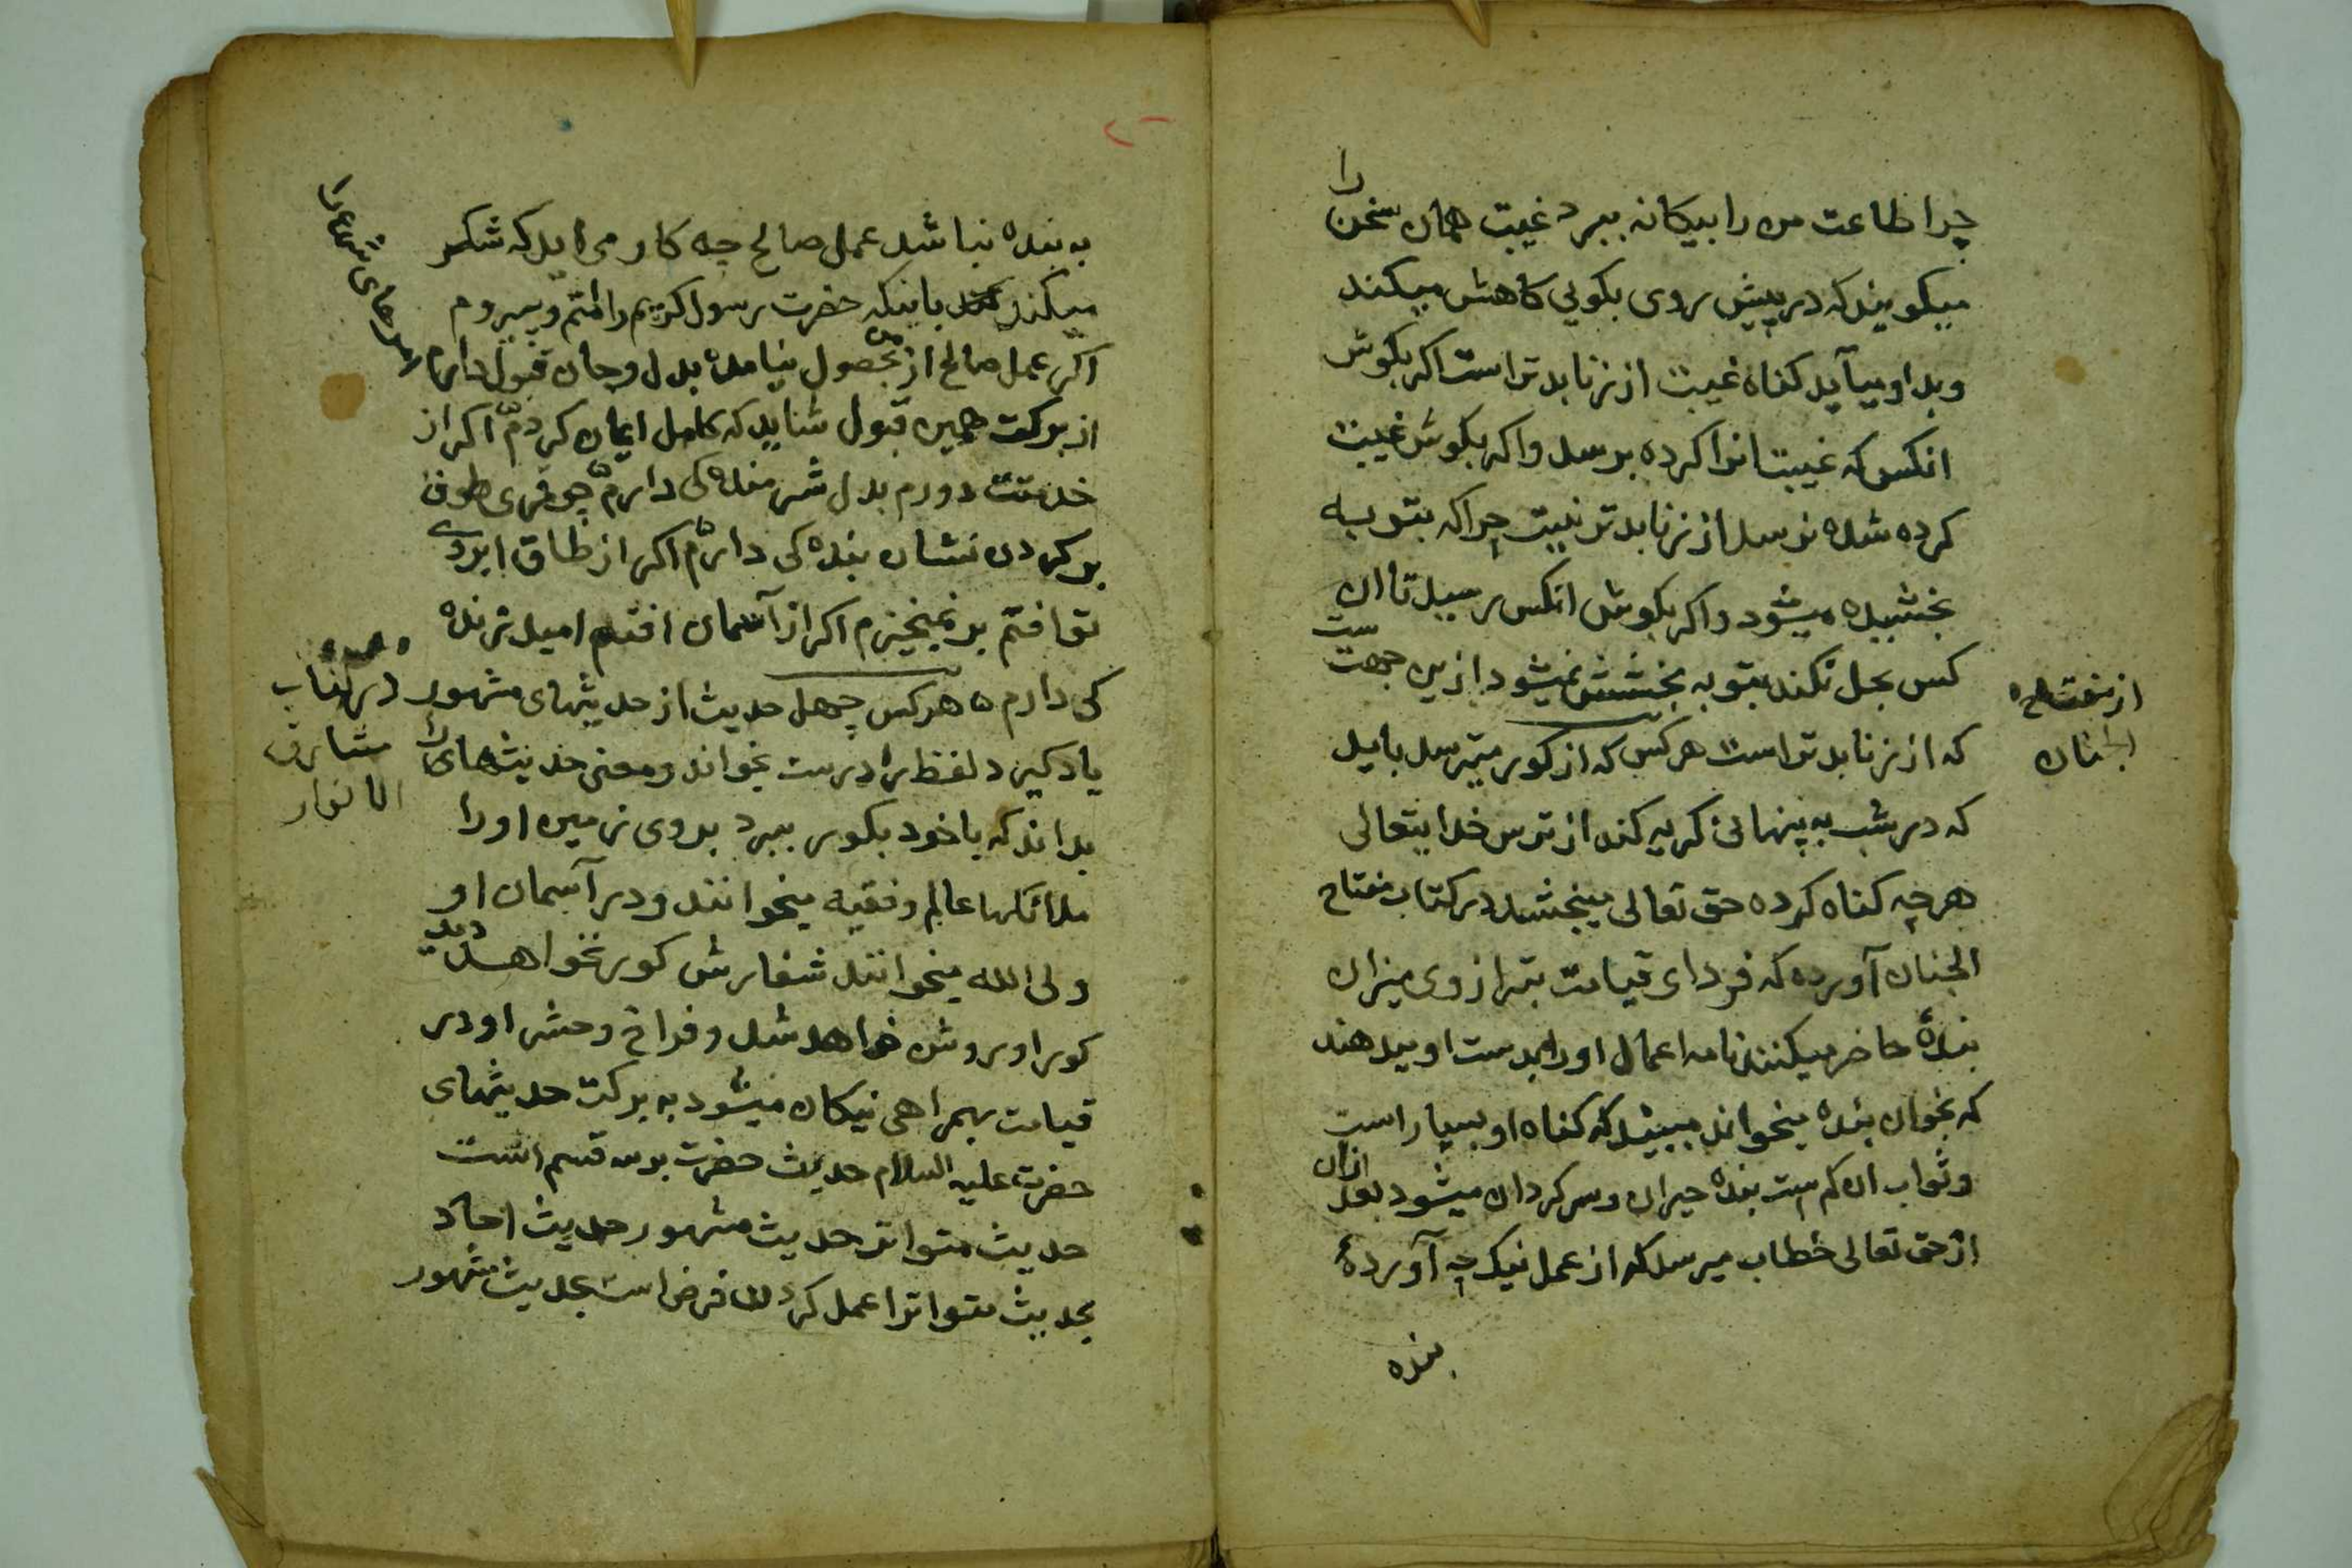 چرا طاعت من را بیکانه ببرد غیبت همان سخن را
میکویند که در پیش روی بکویی کاهش میکند
وبد او میآید کناه غیبت از زنا بدتر است اکر بکوش
انکس که غیبت انرا کرده برسد واکر بکوش غیبت
کرده شده نرسد از زنا بدتر نیست چراکه بتوبه
بخشیده میشود واکر بکوش انکس رسید تا ان
کس بحل نکند بتوبه بخشش نمیشود ازین جهت ست
که از زنا بدتر است هر کس که از کور میترسد باید
که در شب به پنهانی کریه کند از ترس خدایتعالی
هرچه کناه کرده حق تعالی میبخشد در کتاب مفتاح
الجنان آورده که فردای قیامت بترازوی میزان
بندهٔ حاضر میکنند نامه اعمال اورا بدست او میدهند
که بخوان بنده میخواند میبیند که کناه او بسیار است
وثواب ان کم ست بنده حیران وسرکردان میشود بعد ازان
از حق تعالی خطاب میرسد که از عمل نیک چه آوردهٔ
بنده
از مفتاح
الجنان
به بنده نباشد عمل صالح چه کار می اید که شکر
میکند باینکه حضرت رسول کریم را امتم وپیروم
اکر عمل صالح از من بحصول نیامده بدل وجان قبول دارم
از برکت همین قبول شاید که کامل ایمان کردم اکر از
خدمتت دورم بدل شرمنده کی دارم چو قمری طوق
بر کردن نشان بنده کی دارم اکر از طاق ابروی
تو افتم بر نمیخیزم اکر از آسمان افتم امید زنده
کی دارم ه هر کس چهل حدیث از حدیثهای مشهور
یاد کیرد لفظ را درست بخواند ومعنی حدیثهای را
بداند که با خود بکور ببرد بروی زمین اورا
ملائکها عالم وفقیه میخوانند ودر آسمان او
ولی الله میخوانند شفارش کور نخواهد دید
کور او روشن خواهد شد وفراخ وحشر او در
قیامت بهمراهی نیکان میشود به برکت حدیثهای
حضرت علیه السلام حدیث حضرت برسه قسم است
حدیث متواتر حدیث مشهور حدیث احاد
بحدیث متواتر را عمل کردن فرض است بحدیث مشهور
در کتاب
مشارق
الانوار